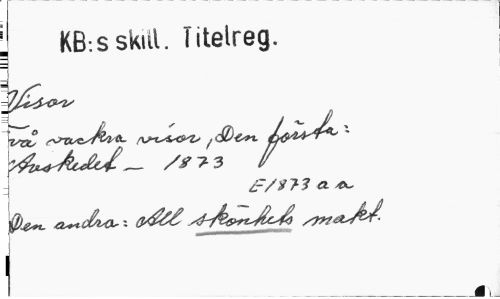 KB:s skill. Titelreg.
Visor
Två vackra visor, Den första:
Avskedet — 1873
E1873 a a
Den andra: All skönhets makt.